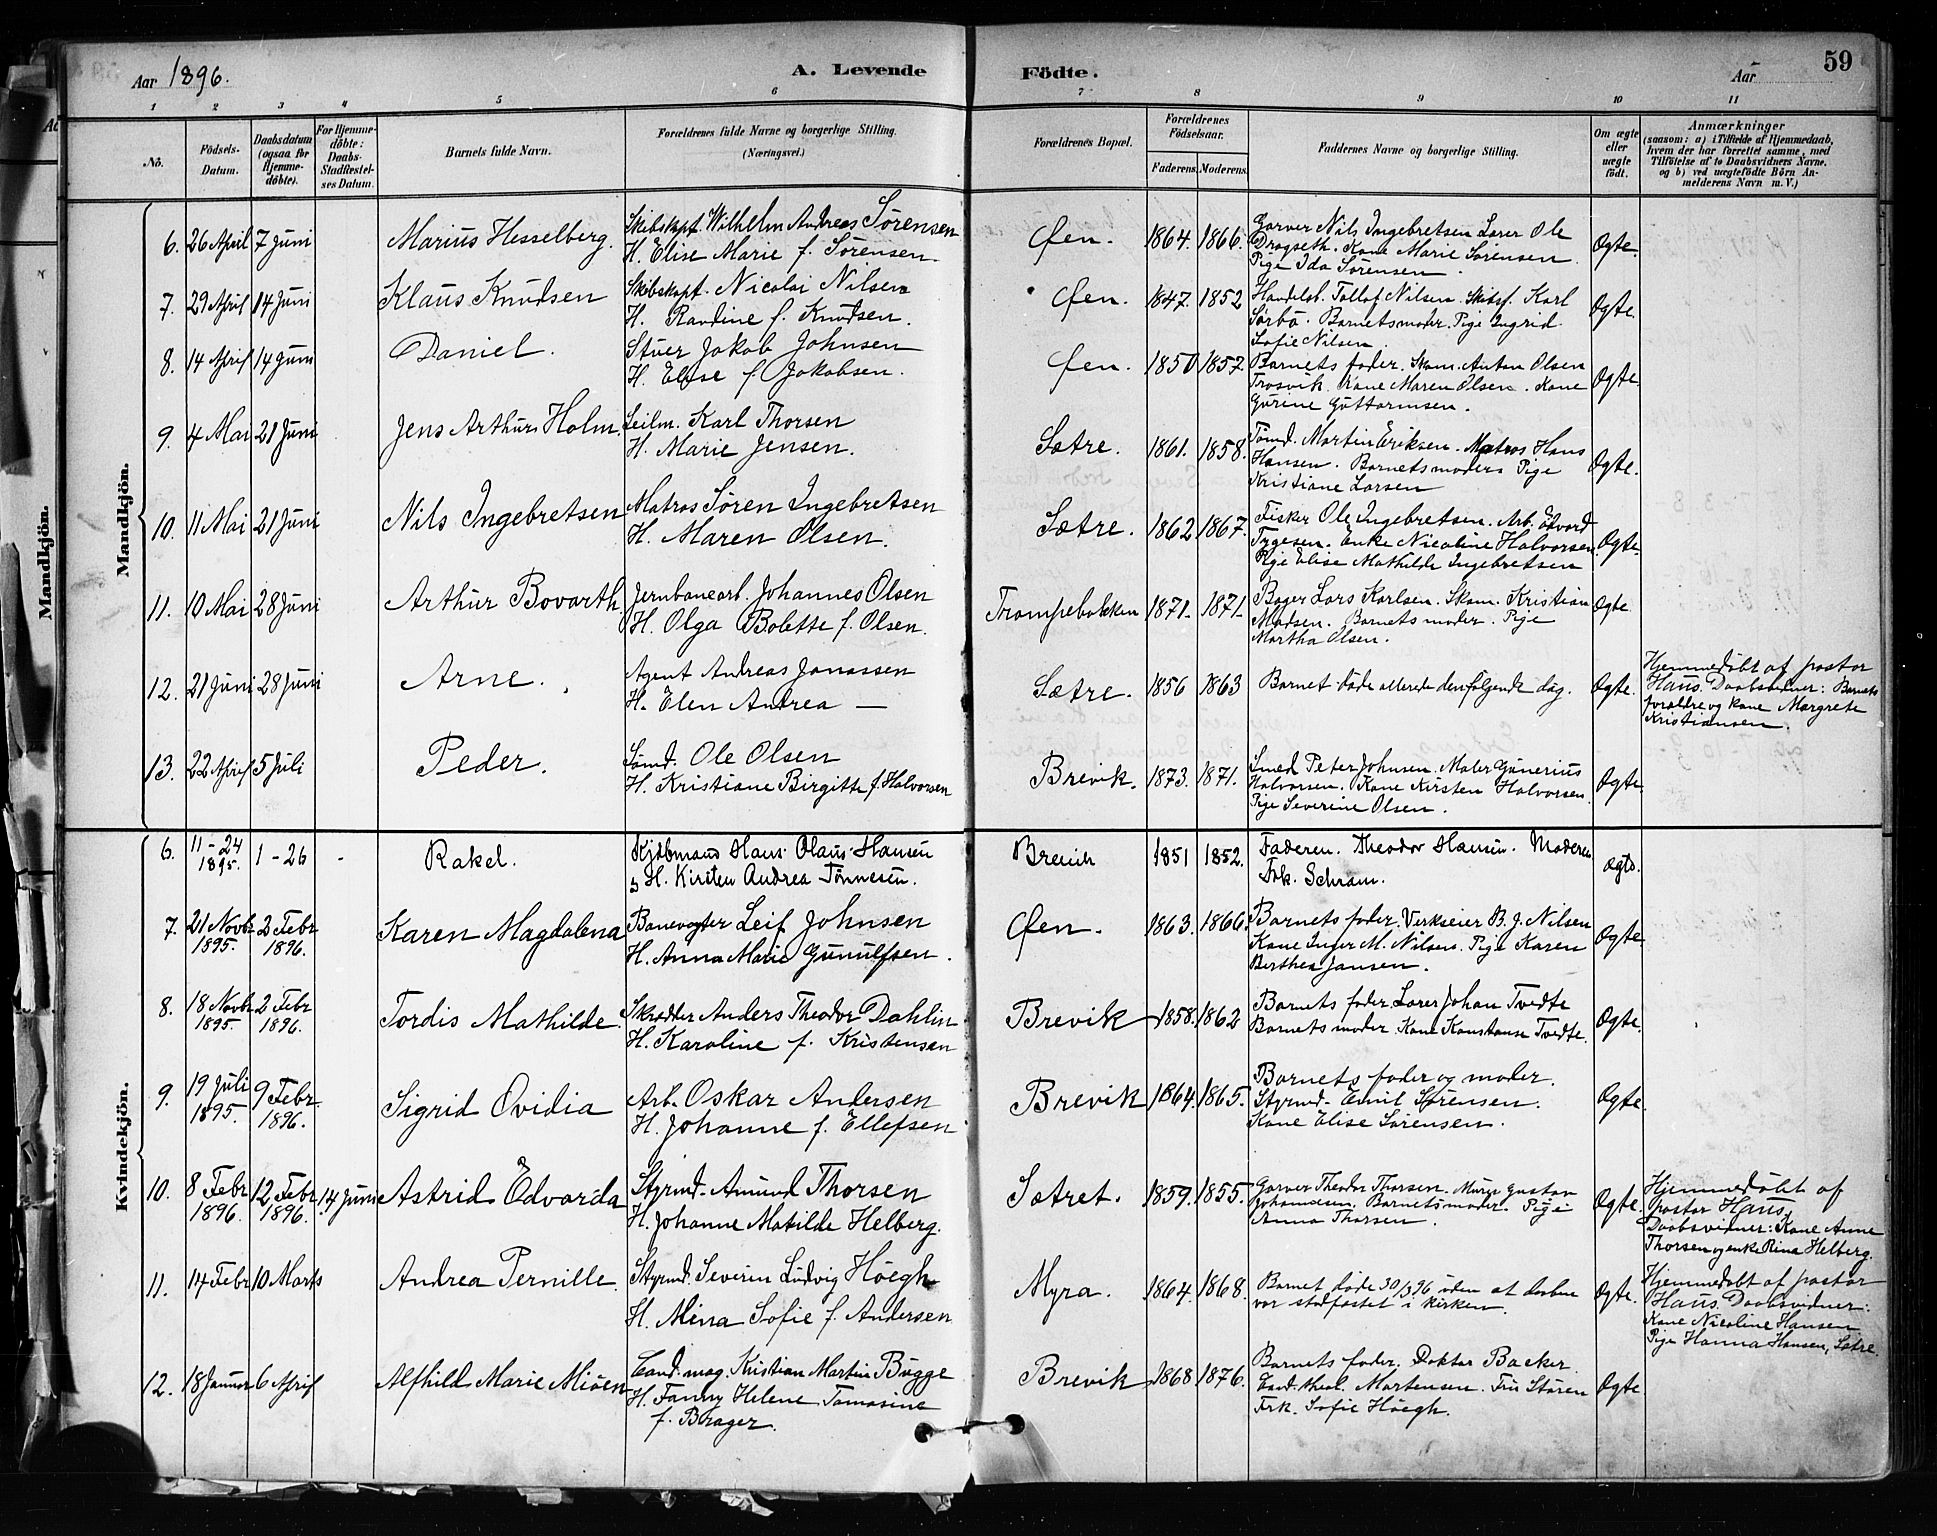 Aar 1896.
A. Levende Födte.
Aar
59
1 2 3 4 5 6 7 8 9 10 11
No.
Födsels-Datum.
Daabsdatum (ogsaa for Hjemmedöbte).
For Hjemmedöbte: Daabs-Stadfæstelses Datum.
Barnets fulde Navn.
Forældrenes fulde Navne og borgerlige Stilling. (Næringsvei.)
Forældrenes Bopæl.
Forældrenes Födselsaar.
Faderens. Moderens.
Faddernes Navne og borgerlige Stilling.
Om ægte eller uægte födt.
Anmærkninger
(saasom: a) i Tilfælde af Hjemmedaab, hvem der har forrettet samme, med Tilföielse af to Daabsvidners Navne. og b) ved uægtefödte Börn Anmelderens Navn m. V.)
Mandkjön.
Mandkjön.
6. 26 April 7 Juni Marius Hesselberg. Skibskapt. Wilhelm Andreas Sørensen H. Elise Marie f. Sørensen. Øen. 1864. 1866. Garver Nils Ingebretsen Lærer Ole Dragseth. Kone Marie Sørensen. Pige Ida Sørensen. Ægte.
7. 29 April 14 Juni Klaus Knudsen Skibskapt. Nicolai Nilsen H. Randine f. Knudsen. Øen. 1847. 1852 Handelsb. Tollof Nilsen. Skibsf. Karl Sørbø. Barnets moder. Pige Ingrid Sofie Nilsen. Ægte.
8. 14 April 14 Juni Daniel. Stuer Jakob Johnsen H. Elise f. Jakobsen. Øen. 1850 1857. Barnets fader. Skom. Anton Olsen Trosvik. Kone Maren Olsen. Kone Gurine Guttormsen. Ægte.
9. 4 Mai 21 Juni Jens Arthur Holm. Seilm. Karl Thorsen H. Marie Jensen. Sætre. 1861. 1858. Tømd. Martin Eriksen. Matros Hans Hansen. Barnets moder. Pige Kristiane Larsen Ægte.
10. 11 Mai 21 Juni Nils Ingebretsen Matros Søren Ingebretsen H. Maren Olsen. Sætre. 1862 1867. Fisker Ole Ingebretsen. Arb. Edvard Tygesen. Enke Nicoline Halvorsen. Pige Elise Mathilde Ingebretsen Ægte.
11. 10 Mai 28 Juni Arthur Bovarth. Jernbanearb. Johannes Olsen H. Olga Bolette f. Olsen. Trompebakken 1871. 1871 Bager Lars Karlsen. Skom. Kristian Madsen. Barnets moder. Pige Martha Olsen. Ægte
12. 21 Juni 28 Juni Arne. Agent Andreas Jonassen H. Elen Andrea — Sætre. 1856 1863 Barnet døde allerede den følgende dag. Ægte. Hjemmedøbt af pastor Hans. Daabsvidner: Barnets forældre og kone Margrete Kristiansen.
13. 22 April 5 Juli Peder. Sømd. Ole Olsen H. Kristiane Birgitte f. Halvorsen Brevik. 1873. 1871. Smed Peter Johnsen. Maler Gunerius Halvorsen. Kone Kirsten Halvorsen. Pige Severine Olsen. Ægte.
Kvindekjön.
6. 11-24 1895. 1-26 - Rakel. Kjöbmand Hans Olaus Hansen & H. Kirsten Andrea Tönnesen. Brevik 1851 1852. Faderen. Theodor Hansen. Moderen Frk. Schram. ægte.
7. 21 Novbr 1895. 2 Febr 1896. Karen Magdalena Banevogter Leif Johnsen H. Anna Marie Gunulfsen. Øen. 1863. 1866. Barnets fader. Verkseier B. J. Nilsen Kone Inger M. Nilsen. Pige Karen Berthea Jansen. Ægte.
8. 18 Novbr 1895. 2 Febr 1896. Tordis Mathilde. Skrædder Anders Theodor Dahlin H. Karoline f. Kristensen Brevik 1858. 1862 Barnets fader. Lærer Johan Tvedte Barnets moder. Kone Konstanse Tvedte. Ægte.
9. 19 Juli 1895. 9 Febr. 1896. Sigrid Ovidia Arb. Oskar Andersen H. Johanne f. Ellefsen Brevik 1864. 1865. Barnets fader og moder. Styrmd. Emil Sørensen. Kone Elise Sørensen. Ægte.
10. 8 Febr 1896. 12 Febr 1896. 14 Juni Astrid Edvarda Styrmd. Amund Thorsen H. Johanne Matilde Helberg. Sætret. 1859. 1855. Garver Theodor Thorsen. Murer Gustav Johannesen. Barnets moder. Pige Anna Thorsen. Ægte. Hjemmedøbt af pastor Hans. Daabsvidner: Kone Anne Thorsen og enke Rina Helberg.
11. 14 Febr 10 Marts Andrea Pernille. Styrmd. Severin Ludvig Höegh H. Mina Sofie f. Andersen Myra. 1864. 1868. Barnet døde 30/3 96 uden at daaben var stadfæstet i kirken. Ægte. Hjemmedøbt af pastor Hans. Daabsvidner: Kone Nicoline Hansen Pige Hanna Hansen, Sætre.
12. 18 Januar 6 April Alfhild Marie Miöen Cand. mag. Kristian Martin Bugge H. Fanny Helene Tomasine f. Brager. Brevik 1868 1876. Barnets fader. Doktor Backer Cand. theol. Mortensen. Fru Stören Frk. Sofie Höegh. Ægte.